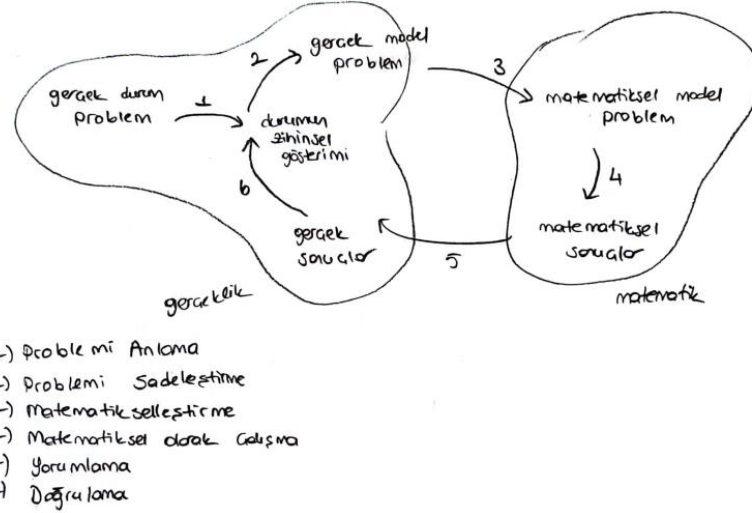 gerçek durum
problem
1
2
gerçek model
problem
durumun
zihinsel
gösterimi
3
matematiksel model
problem
4
matematiksel
sonuçlar
5
gerçek
sonuçlar
6
gerçeklik
matematik
-) Problemi Anlama
-) Problemi Sadeleştirme
-) Matematikselleştirme
-) Matematiksel olarak Çalışma
-) Yorumlama
Doğrulama